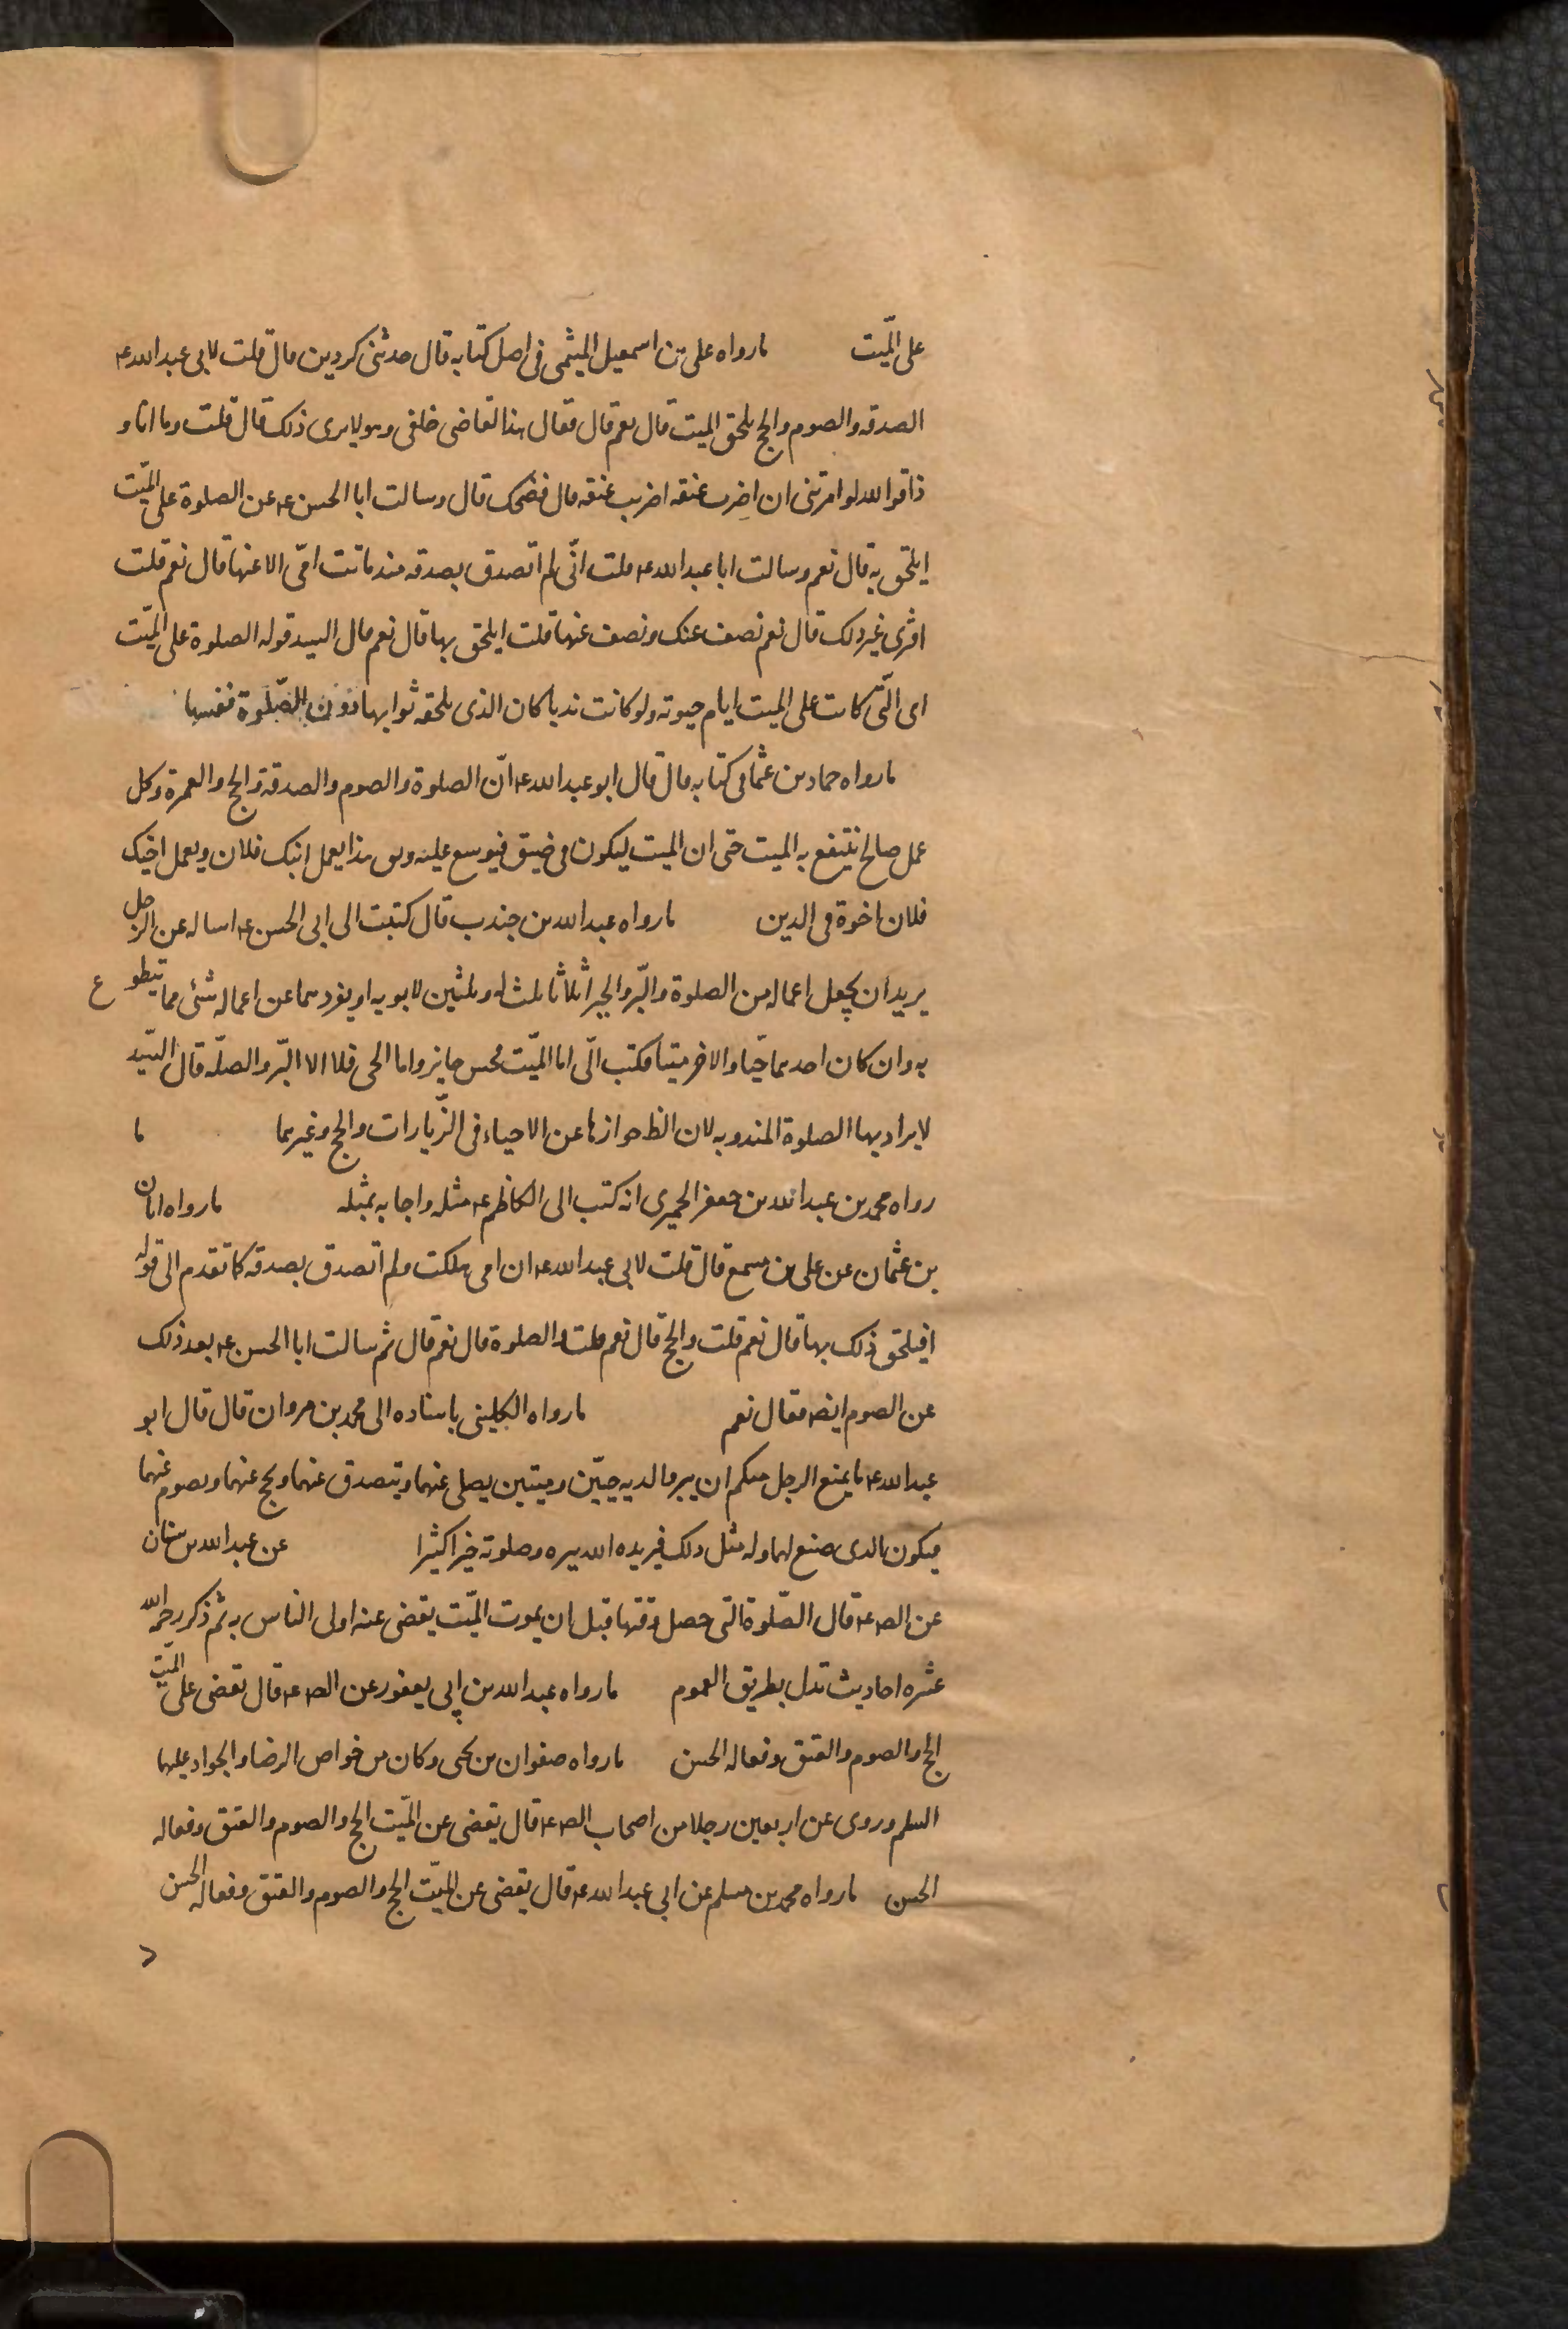 على الميّت ما رواه على بن اسمعيل الميثمى فى اصل كتابه قال حدثنى كردين قال قلت لابى عبد الله ع
الصدقه والصوم والحج يلحق الميت قال نعم قال فقال هذا القاضى خلفى وهو لا يرى ذلك قال قلت وما انا و
ذا فوالله لو امرتنى ان اضرب عنقه اضرب عنقه قال فضحك قال وسالت ابا الحسن ع عن الصلوة على الميّت
ايلحق به قال نعم وسالت ابا عبد الله ع قلت انّى لم اتصدق بصدقه منذ ماتت امّى الا عنها قال نعم قلت
افترى غير ذلك قال نعم نصف عنك ونصف عنها قلت ايلحق بها قال نعم قال السيد قوله الصلوة على الميّت
اى الّتى كانت على الميت ايام حيوته ولو كانت ندبا كان الذى يلحقه ثوابها دون الصّلوة نفسها
ما رواه حماد بن عثما فى كتابه قال قال ابو عبد الله ع انّ الصلوة والصوم والصدقة والحج والعمرة وكل
عمل صالح ينتفع به الميت حتى ان الميت ليكون فى ضيق فيوسع عليه وىق هذا بعمل ابنك فلان وبعمل اخيك
فلان اخوة فى الدين ما رواه عبد الله بن جندب قال كتبت الى ابى الحسن ع اساله عن الرجل
يريد ان يجعل اعماله من الصلوة والبّر والخير اثلاثا ثلث له وثلثين لابويه او يفردهما عن اعماله شئى مما يتطوع
به وان كان احدهما حيّا والاخر ميتا فكتب الّى اما الميّت فحسن جايز واما الحى فلا الا البّر والصلّه قال السّيد
لا يراد بها الصلوة المندوبه لان الظ جوازها عن الاحياء فى الزّيارات والحج وغيرهما ما
رواه محمد بن عبد الله بن جعفر الحميرى انه كتب الى الكاظم ع مثله واجابه بمثله ما رواه ابان
بن عثمان عن على بن مسمع قال قلت لابى عبد الله ع ان امى هلكت ولم اتصدق بصدقه كما تقدم الى قوله
افيلحق ذلك بها قال نعم قلت والحج قال نعم قلت والصلوة قال نعم قال ثم سالت ابا الحسن ع بعد ذلك
عن الصوم ايضا فقال نعم ما رواه الكلينى باسناده الى محمد بن مروان قال قال ابو
عبد الله ع ما يمنع الرجل منكم ان يبر والديه حيّين وميتين يصلى عنهما ويتصدق عنهما ويحج عنهما ويصوم عنهما
فيكون الذى صنع لهما وله مثل ذلك فيزيده الله ببره وصلوته خيرا كثيرا عن عبد الله بن سنان
عن الص ع قال الصّلوة التى حصل وقتها قبل ان يموت الميّت يقضى عنه اولى الناس به ثم ذكر رحمه الله
عشره احاديث تدل بطريق العموم ما رواه عبد الله بن ابى يعفور عن الص ع قال تقضى على الميّت
الحج والصوم والعتق وفعاله الحسن ما رواه صفوان بن يحيى وكان من خواص الرضا والجواد عليهما
السلم وروى عن اربعين رجلا من اصحاب الص ع قال يقضى عن الميّت الحج والصوم والعتق وفعاله
الحسن ما رواه محمد بن مسلم عن ابى عبد الله ع قال يقضى عن الميّت الحج والصوم والعتق وفعاله الحسن